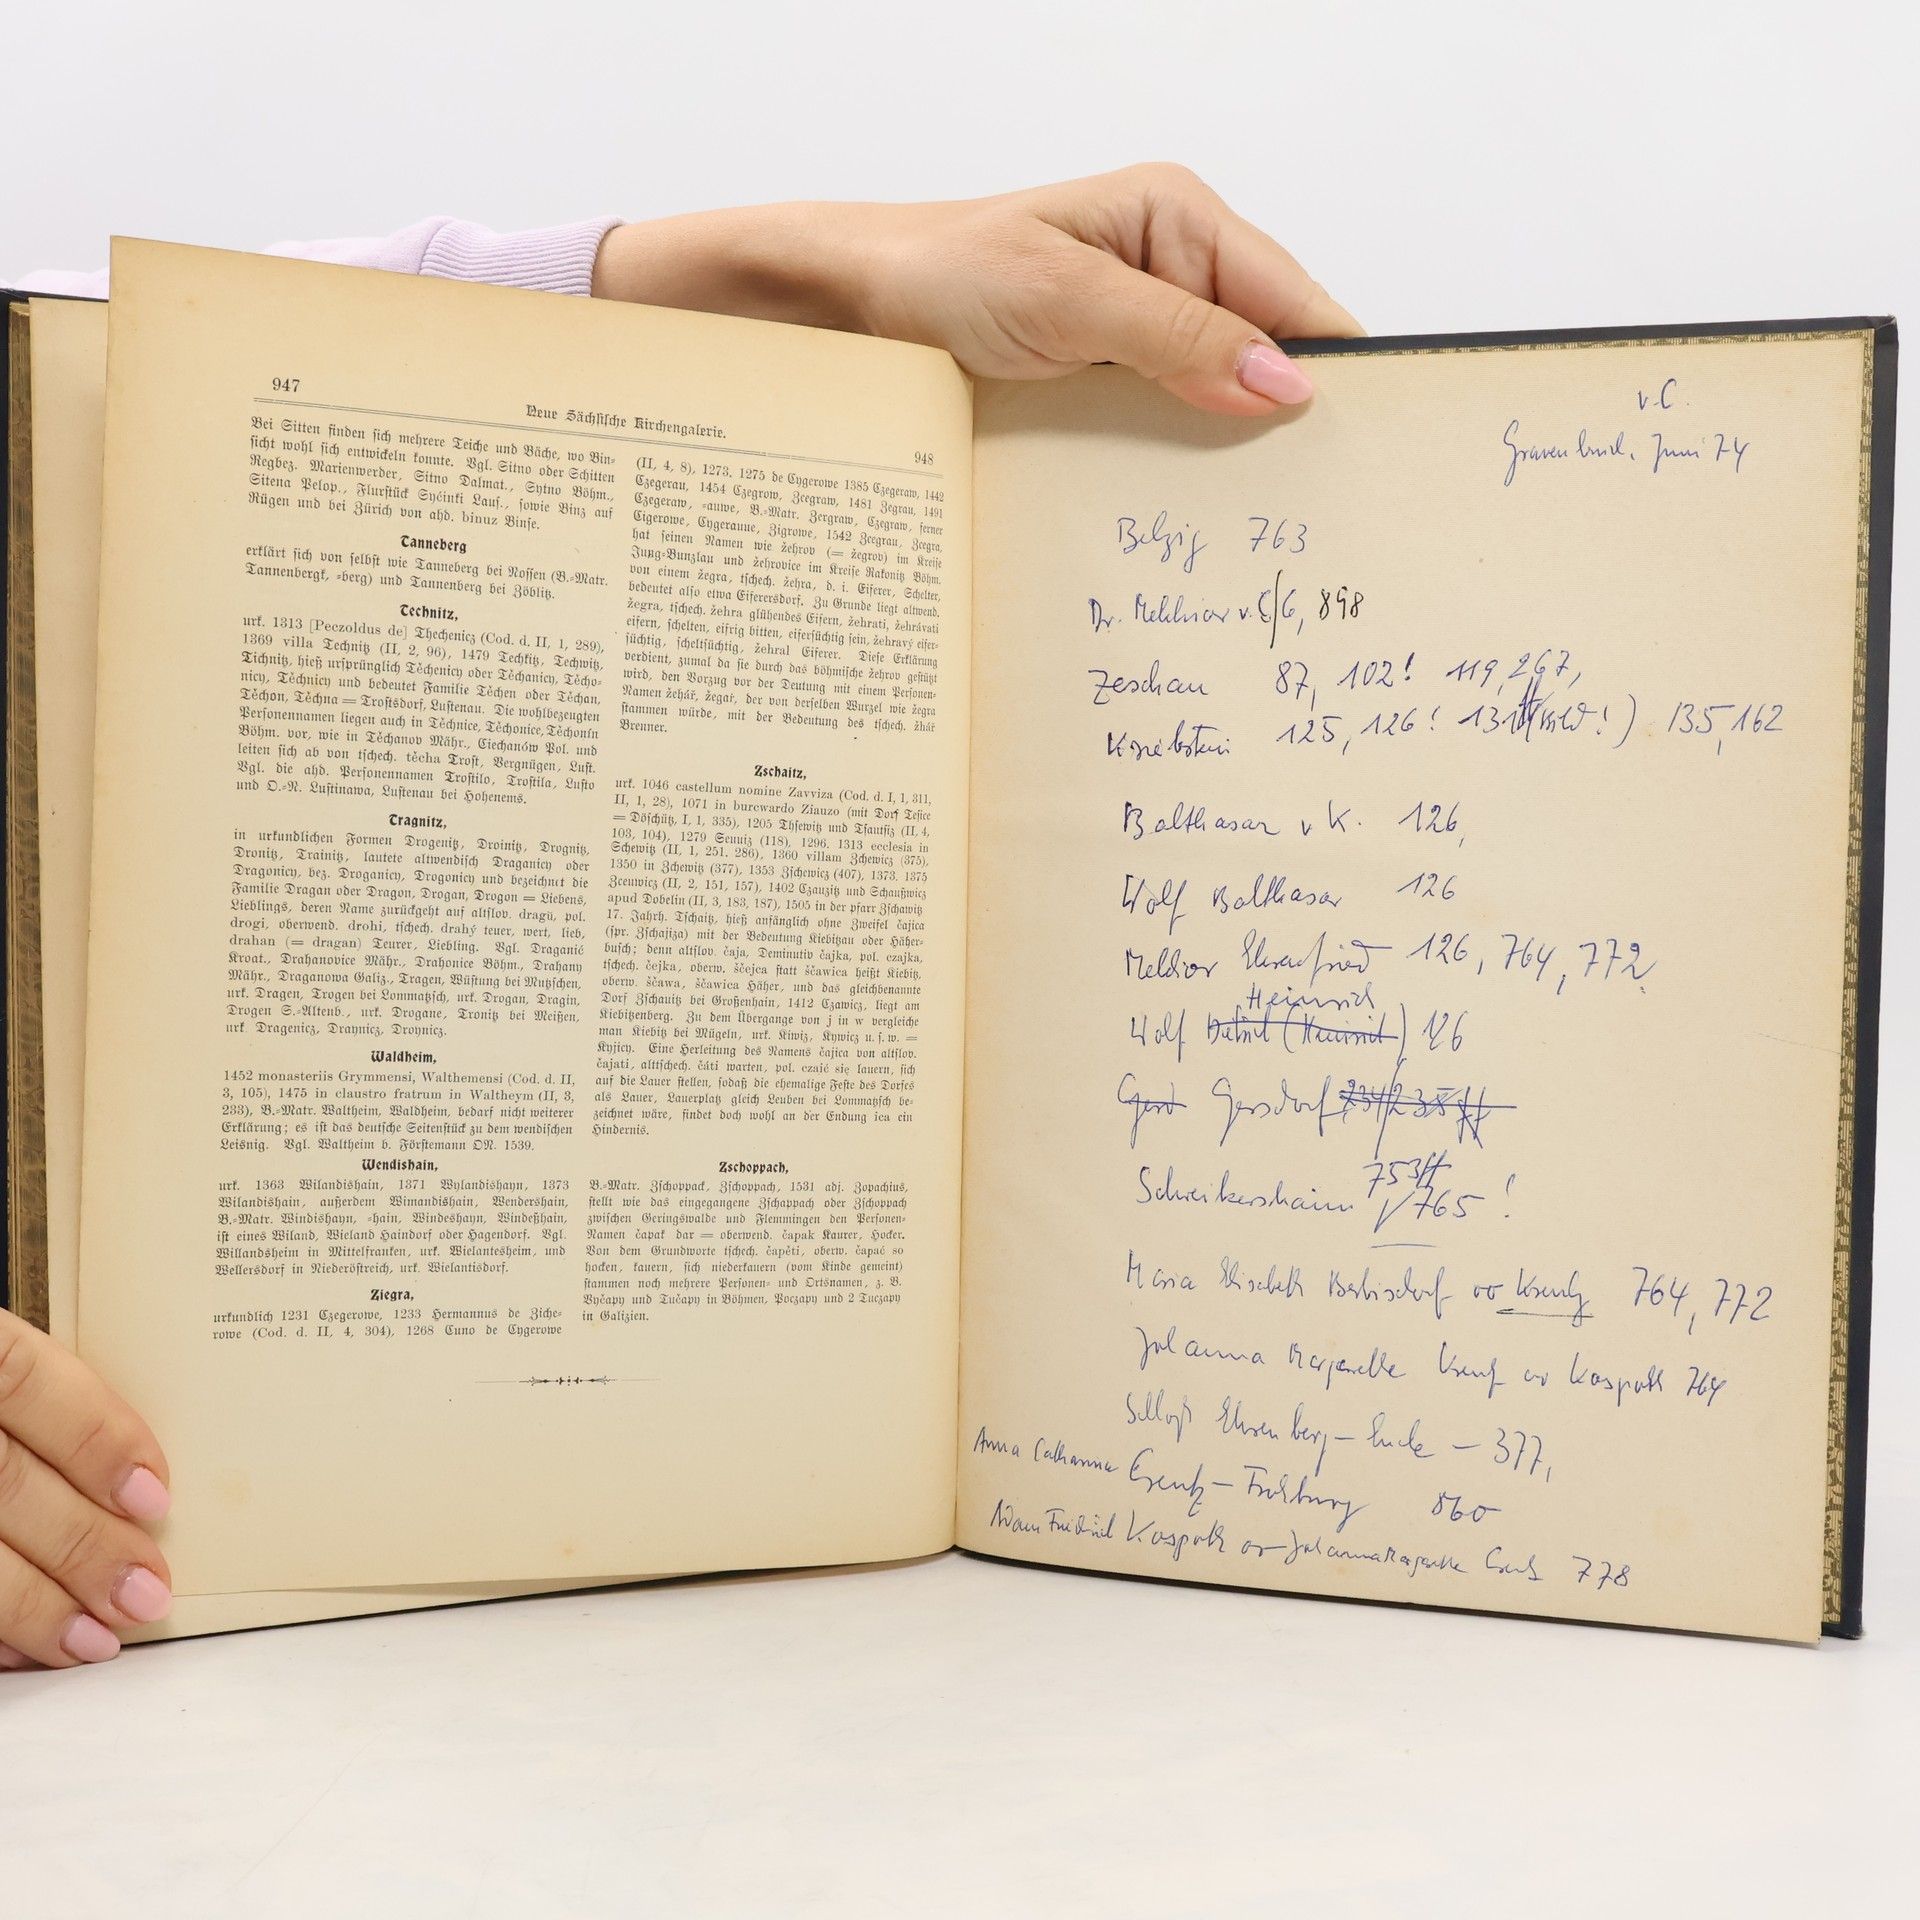 947
Neue Sächsische Kirchengalerie.
948
Bei Sitten finden sich mehrere Teiche und Bäche, wo Bin-
sicht wohl sich entwickeln konnte. Vgl. Sitno oder Schitten
Regbez. Marienwerder, Sitno Dalmat., Sytno Böhm.,
Sitena Pelop., Flurstück Syćinki Laus., sowie Binz auf
Rügen und bei Zürich von ahd. binuz Binse.
Tanneberg
erklärt sich von selbst wie Tanneberg bei Nossen (B.=Matr.
Tannenbergk, =berg) und Tannenberg bei Zöblitz.
Technitz,
urk. 1313 [Peczoldus de] Thechenicz (Cod. d. II, 1, 289),
1369 villa Technitz (II, 2, 96), 1479 Techkitz, Techwitz,
Tichnitz, hieß ursprünglich Těchenicy oder Těchanicy, Těcho-
nicy, Těchnicy und bedeutet Familie Těchen oder Těchan,
Těchon, Těchna = Trostsdorf, Lustenau. Die wohlbezeugten
Personennamen liegen auch in Těchnice, Těchonice, Těchonín
Böhm. vor, wie in Těchanov Mähr., Ciechanów Pol. und
leiten sich ab von tschech. těcha Trost, Vergnügen, Lust.
Vgl. die ahd. Personennamen Trostilo, Trostila, Lusto
und O.=N. Lustinawa, Lustenau bei Hohenems.
Tragnitz,
in urkundlichen Formen Drogenitz, Droinitz, Drognitz,
Dronitz, Trainitz, lautete altwendisch Draganicy oder
Dragonicy, bez. Droganicy, Drogonicy und bezeichnet die
Familie Dragan oder Dragon, Drogan, Drogon = Liebens,
Lieblings, deren Name zurückgeht auf altslov. dragŭ, pol.
drogi, oberwend. drohi, tschech. drahý teuer, wert, lieb,
drahan (= dragan) Teurer, Liebling. Vgl. Draganić
Kroat., Drahanovice Mähr., Drahonice Böhm., Drahany
Mähr., Draganowa Galiz., Tragen, Wüstung bei Mutzschen,
urk. Dragen, Trogen bei Lommatzsch, urk. Drogan, Dragin,
Drogen S.=Altenb., urk. Drogane, Tronitz bei Meißen,
urk. Dragenicz, Draynicz, Droynicz.
Waldheim,
1452 monasteriis Grymmensi, Walthemensi (Cod. d. II,
3, 105), 1475 in claustro fratrum in Waltheym (II, 3,
233), B.=Matr. Waltheim, Waldheim, bedarf nicht weiterer
Erklärung; es ist das deutsche Seitenstück zu dem wendischen
Leisnig. Vgl. Waltheim b. Förstemann ON. 1539.
Wendishain,
urk. 1363 Wilandishain, 1371 Wylandishayn, 1373
Wilandishain, außerdem Wimandishain, Wendershain,
B.=Matr. Windishayn, =hain, Windeshayn, Windeßhain,
ist eines Wiland, Wieland Haindorf oder Hagendorf. Vgl.
Willandsheim in Mittelfranken, urk. Wielantesheim, und
Wellersdorf in Niederöstreich, urk. Wielantisdorf.
Ziegra,
urkundlich 1231 Czegerowe, 1233 Hermannus de Ziche-
rowe (Cod. d. II, 4, 304), 1268 Cuno de Cygerowe
(II, 4, 8), 1273. 1275 de Cygerowe 1385 Czegeraw, 1442
Czegerau, 1454 Czegrow, Zcegraw, 1481 Zegrau, 1491
Czegeraw, =auwe, B.=Matr. Zergraw, Czegraw, ferner
Cigerowe, Cygeranue, Zigrowe, 1542 Zcegrau, Zcegra,
hat seinen Namen wie žehrov (= žegrov) im Kreise
Jung=Bunzlau und žehrovice im Kreise Rakonitz Böhm.
von einem žegra, tschech. žehra, d. i. Eiferer, Schelter,
bedeutet also etwa Eiferersdorf. Zu Grunde liegt altwend.
žegra, tschech. žehra glühendes Eifern, žehrati, žehrávati
eifern, schelten, eifrig bitten, eifersüchtig sein, žehravý eifer-
süchtig, scheltsüchtig, žehral Eiferer. Diese Erklärung
verdient, zumal da sie durch das böhmische žehrov gestützt
wird, den Vorzug vor der Deutung mit einem Personen-
Namen žehář, žegař, der von derselben Wurzel wie žegra
stammen würde, mit der Bedeutung des tschech. žhář
Brenner.
Zschaitz,
urk. 1046 castellum nomine Zavviza (Cod. d. I, 1, 311,
II, 1, 28), 1071 in burcwardo Ziauzo (mit Dorf Tesice
= Döschütz, I, 1, 335), 1205 Thsewitz und Tsautsiz (II, 4,
103, 104), 1279 Seuuiz (118), 1296. 1313 ecclesia in
Schewitz (II, 1, 251. 286), 1360 villam Zchewicz (375),
1350 in Zchewitz (377), 1353 Zschewicz (407), 1373. 1375
Zceuwicz (II, 2, 151, 157), 1402 Czauzitz und Schaußwicz
apud Dobelin (II, 3, 183, 187), 1505 in der pfarr Zschawitz
17. Jahrh. Tschaitz, hieß anfänglich ohne Zweifel čajica
(spr. Zschajiza) mit der Bedeutung Kiebitzau oder Häher-
busch; denn altslov. čaja, Deminutiv čajka, pol. czajka,
tschech. čejka, oberw. šćejca statt šćawica heißt Kiebitz,
oberw. šćawa, šćawica Häher, und das gleichbenannte
Dorf Zschauitz bei Großenhain, 1412 Czawicz, liegt am
Kiebitzenberg. Zu dem Übergange von j in w vergleiche
man Kiebitz bei Mügeln, urk. Kiwiz, Kywicz u. s. w. =
Kyjicy. Eine Herleitung des Namens čajica von altslov.
čajati, alttschech. čáti warten, pol. czaić się lauern, sich
auf die Lauer stellen, sodaß die ehemalige Feste des Dorfes
als Lauer, Lauerplatz gleich Leuben bei Lommatzsch be-
zeichnet wäre, findet doch wohl an der Endung ica ein
Hindernis.
Zschoppach,
B.=Matr. Zschoppack, Zschoppach, 1531 adj. Zopachius,
stellt wie das eingegangene Zschappach oder Zschoppach
zwischen Geringswalde und Flemmingen den Personen-
Namen čapak dar = oberwend. čapak Kaurer, Hocker.
Von dem Grundworte tschech. čapěti, oberw. čapać so
hocken, kauern, sich niederkauern (vom Kinde gemeint)
stammen noch mehrere Personen= und Ortsnamen, z. B.
Vyčapy und Tučapy in Böhmen, Poczapy und 2 Tuczapy
in Galizien.
v. C.
Gravenbruch, Juni 74
Belzig 763
Dr. Melchior v. C/6, 898
Zeschau 87, 102! 119, 267,
Kriebstein 125, 126! 131ff (Bild!) 135, 162
Balthasar v K. 126,
Wolf Balthasar 126
Melchior Ehrenfried 126, 764, 772
Heinrich
Wolf Dietrich (Heinrich) 126
Gersd Gersdorf 234/235ff
753ff
Schweikershain 765!
Maria Elisabeth Berbisdorf oo Kreutz 764, 772
Johanna Margarethe Kreutz oo Kospoth 764
Schloß Ehrenberg – Ende – 377,
Anna Catharina Creutz – Frohburg 860
Adam Friedrich Kospoth oo Johanna Margarethe Creutz 778